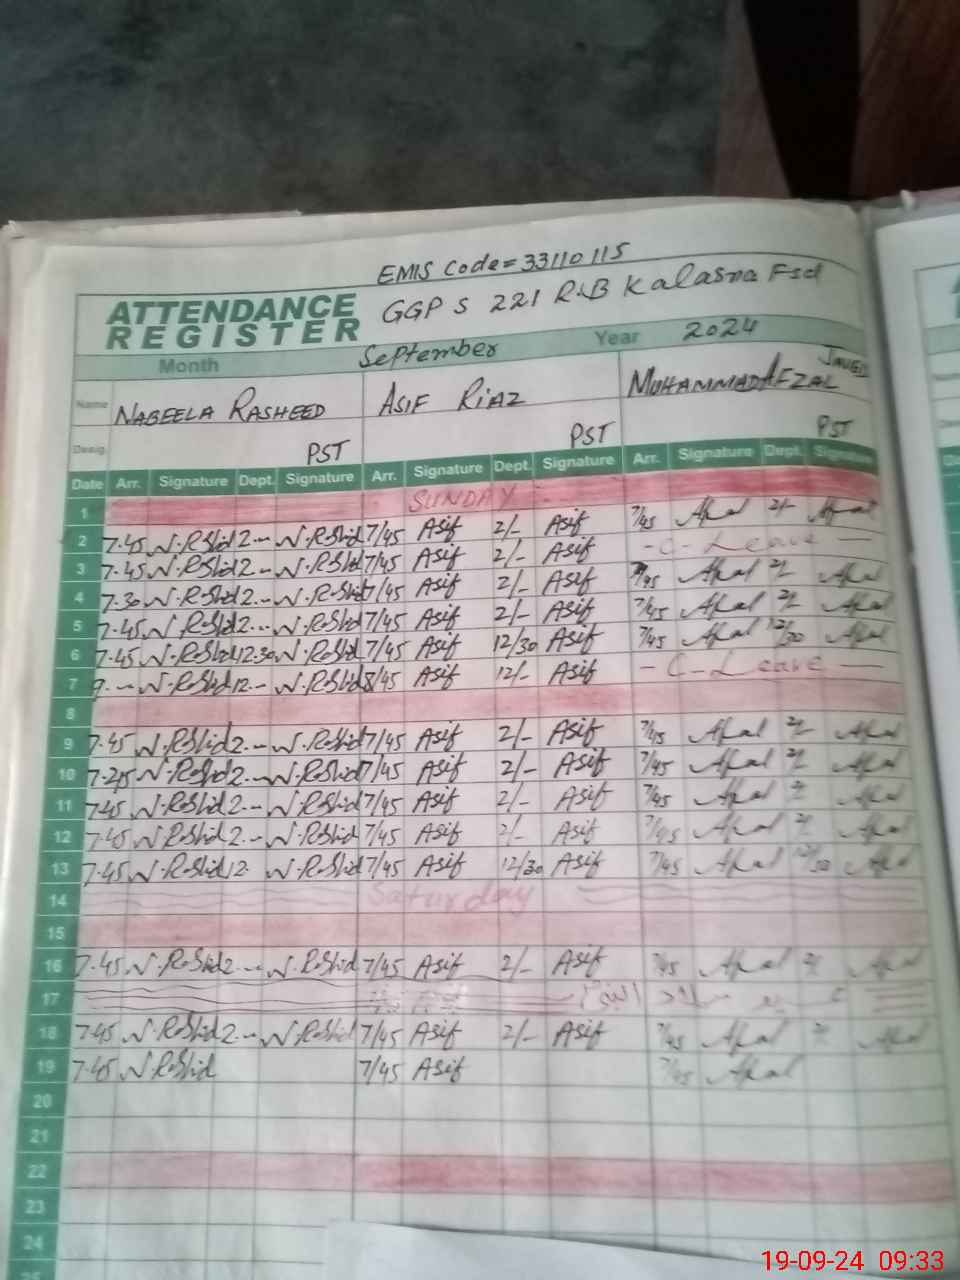 EMIS Code=33110115
ATTENDANCE REGISTER GGPS 221 R.B Kalasna Fsd
Month September Year 2024
Name NABEELA RASHEED ASIF RIAZ MUHAMMAD AFZAL JAVED
Desig. PST PST PST
Date Arr. Signature Dept. Signature Arr. Signature Dept. Signature Arr. Signature Dept. Signature
1 SUNDAY
2 7.45 N.Rashid 2.-- N.Rashid 7/45 Asif 2/- Asif 7/45 Afzal 2/- Afzal
3 7.45 N.Rashid 2.-- N.Rashid 7/45 Asif 2/- Asif - C- Leave -
4 7.30 N.Rashid 2.-- N.Rashid 7/45 Asif 2/- Asif 7/45 Afzal 2/- Afzal
5 7.45 N.Rashid 2.-- N.Rashid 7/45 Asif 2/- Asif 7/45 Afzal 2/- Afzal
6 7.45 N.Rashid 12.30 N.Rashid 7/45 Asif 12/30 Asif 7/45 Afzal 12/30 Afzal
7 N.Rashid 12.-- N.Rashid 8/45 Asif 12/- Asif - C- Leave -
8
9 7.45 N.Rashid 2.-- N.Rashid 7/45 Asif 2/- Asif 7/45 Afzal 2/- Afzal
10 N.Rashid 2.-- N.Rashid 7/45 Asif 2/- Asif 7/45 Afzal 2/- Afzal
11 7.45 N.Rashid 2.-- N.Rashid 7/45 Asif 2/- Asif 7/45 Afzal 2/- Afzal
12 7.45 N.Rashid 2.-- N.Rashid 7/45 Asif 2/- Asif 7/45 Afzal 2/- Afzal
13 7.45 N.Rashid 12. N.Rashid 7/45 Asif 12/30 Asif 7/45 Afzal 12/30 Afzal
14 Saturday
15
16 7.45 N.Rashid 2.-- N.Rashid 7/45 Asif 2/- Asif 7/45 Afzal 2/- Afzal
17 عید میلاد النبی
18 7.45 N.Rashid 2.-- N.Rashid 7/45 Asif 2/- Asif 7/45 Afzal 2/- Afzal
19 7.45 N Rashid 7/45 Asif 7/45 Afzal
20
21
22
23
24
25
19-09-24 09:33